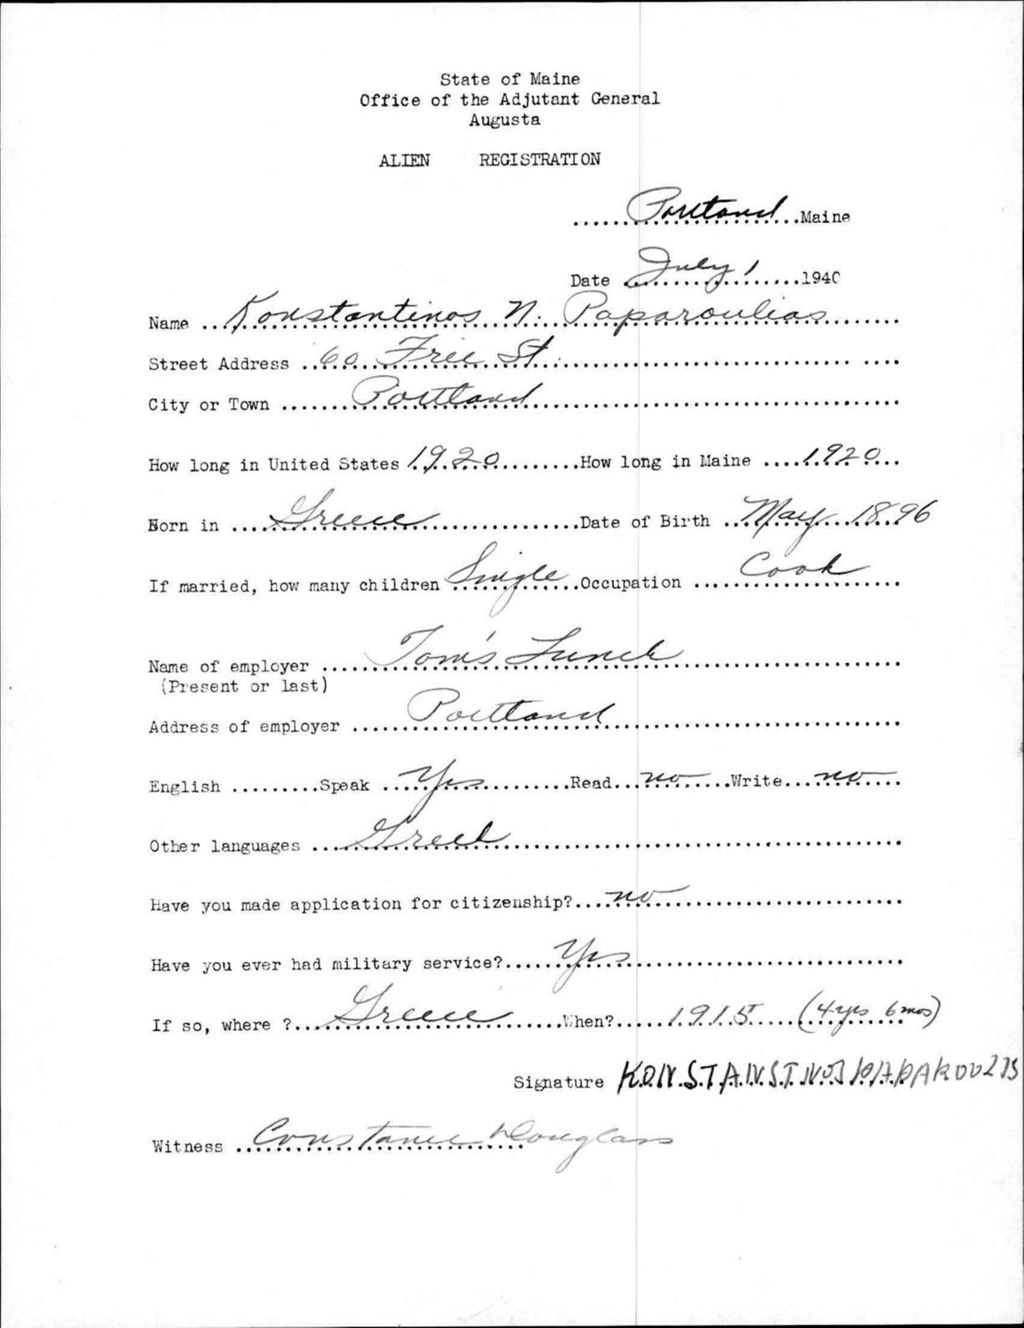 State of Maine
Office of the Adjutant General
Augusta
ALIEN REGISTRATION
Portland Maine
Date July 1 1940
Name Konstantinos N. Paparoulias
Street Address 60 Free St.
City or Town Portland
How long in United States 1920 How long in Maine 1920
Born in Greece Date of Birth May 1896
If married, how many children Single Occupation Cook
Name of employer Tom's Lunch
(Present or last)
Address of employer Portland
English Speak Yes Read no Write no
Other languages Greek
Have you made application for citizenship? no
Have you ever had military service? Yes
If so, where ? Greece When? 1915 (4 yrs 6 mos)
Signature
Witness Constance Douglass